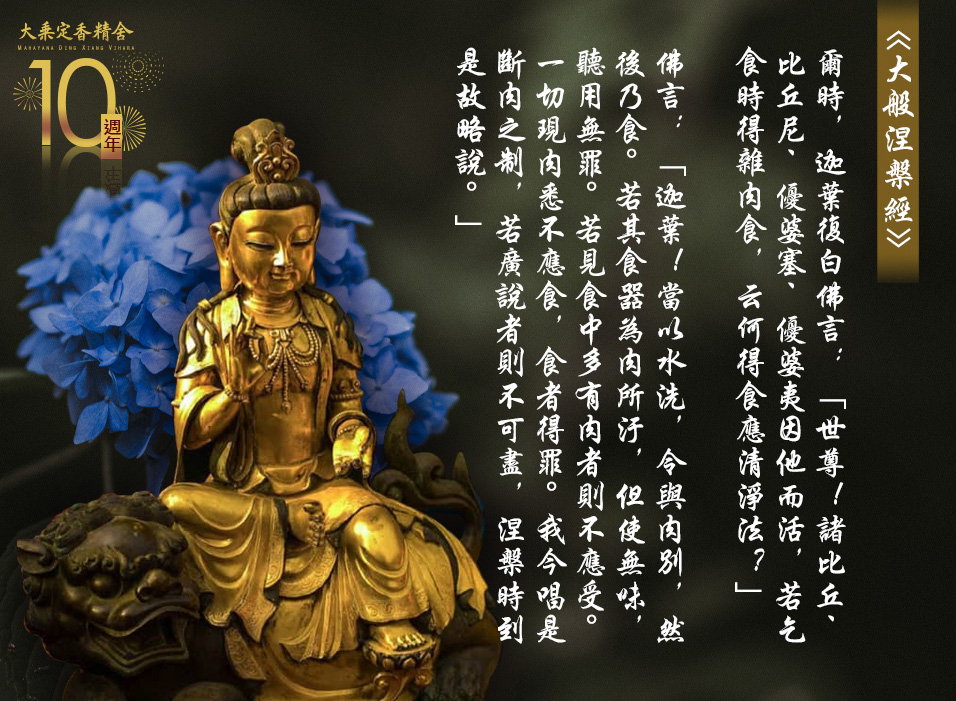 大乘定香精舍
MAHAYANA DING XIANG VIHARA
10
週年
《大般涅槃經》
爾時，迦葉復白佛言：「世尊！諸比丘、
比丘尼、優婆塞、優婆夷因他而活，若乞
食時得雜肉食，云何得食應清淨法？」
佛言：「迦葉！當以水洗，令與肉別，然
後乃食。若其食器為肉所汙，但使無味，
聽用無罪。若見食中多有肉者則不應受。
一切現肉悉不應食，食者得罪。我今唱是
斷肉之制，若廣說者則不可盡，涅槃時到
是故略說。」